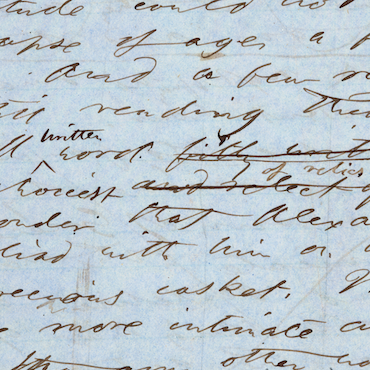 tude could no
apse of ages a
And a few
reading
written
word.
of relics
choicest and select of
onder that Alexa
liad with him on
precious casket.
more intimate
any other wo